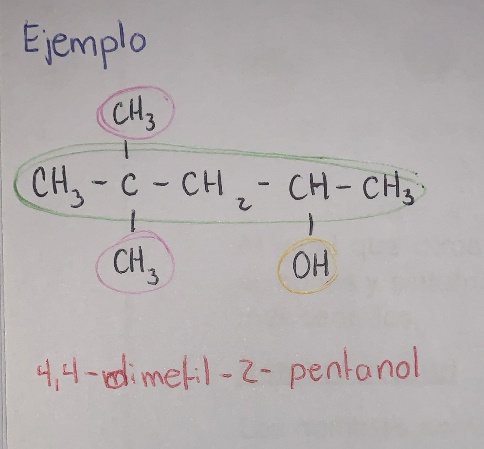 Ejemplo
CH3
CH3 - C - CH2 - CH - CH3
CH3 OH
4,4-dimetil-2-pentanol